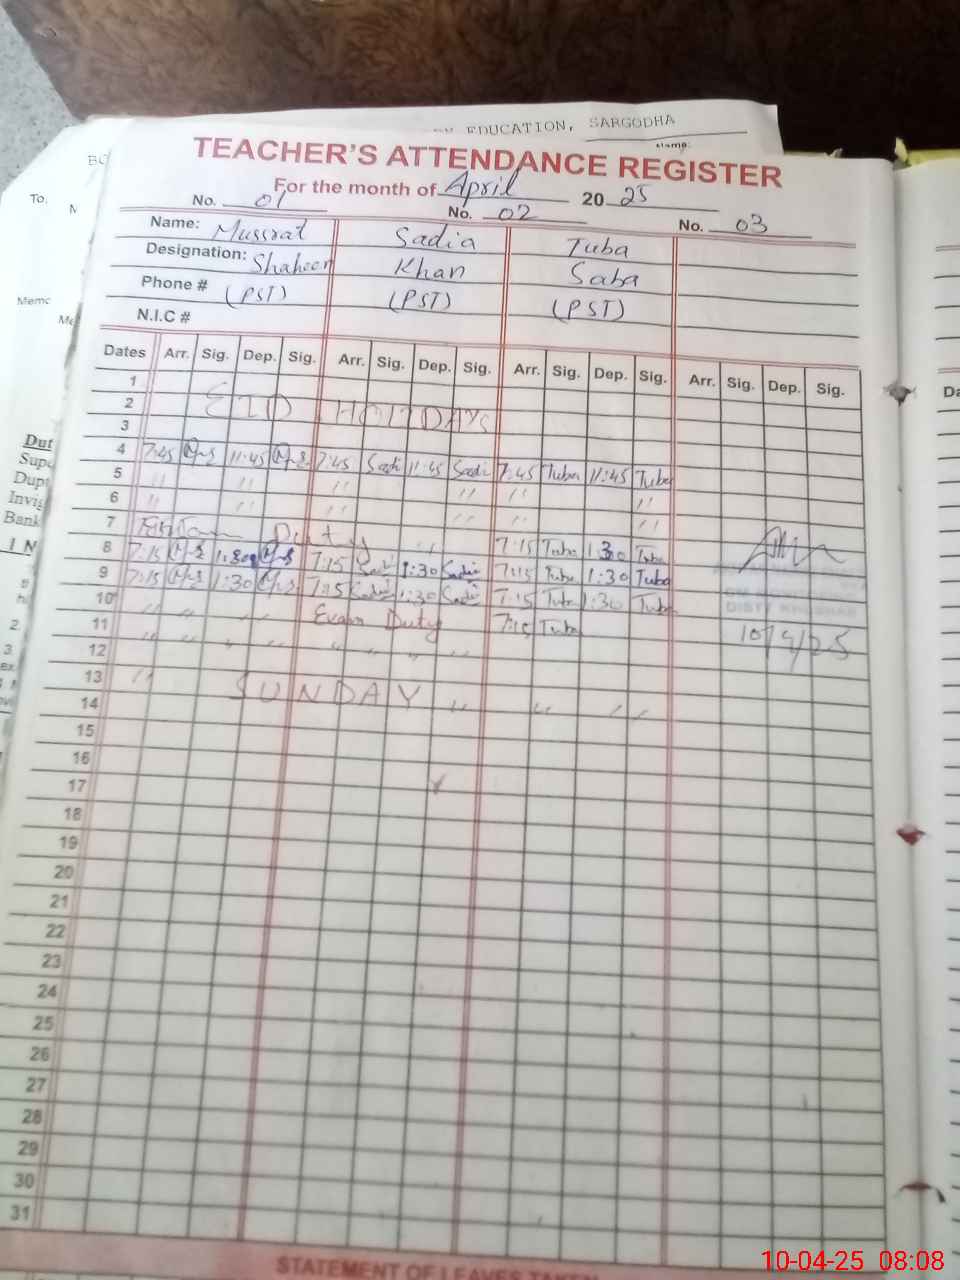 EDUCATION, SARGODHA
TEACHER'S ATTENDANCE REGISTER
For the month of April 2025
No. 01 No. 02 No. 03
Name: Mussrat Sadia Tuba
Designation: Shaheen Khan Saba
Phone # (PST) (PST) (PST)
N.I.C #
Dates Arr. Sig. Dep. Sig. Arr. Sig. Dep. Sig. Arr. Sig. Dep. Sig. Arr. Sig. Dep. Sig.
1
2 EID HOLIDAYS
3
4 7:45 11:45 7:45 Sadi 11:45 Sadi 7:45 Tuba 11:45 Tuba
5 " " " " " "
6 " " " " "
7 Duty " 7:15 Tuba 1:30 Tuba
8 7:15 1:30 7:15 Sadi 1:30 Sadi 7:15 Tuba 1:30 Tuba
9 7:15 1:30 7:15 Sadi 1:30 Sadi 7:15 Tuba 1:30 Tuba
10 " " " " Exam Duty 7:15 Tuba
11 " " " " " " " "
12
13 " SUNDAY " " " "
14
15
16
17
18
19
20
21
22
23
24
25
26
27
28
29
30
31
10/4/25
STATEMENT OF LEAVES TAKEN
10-04-25 08:08